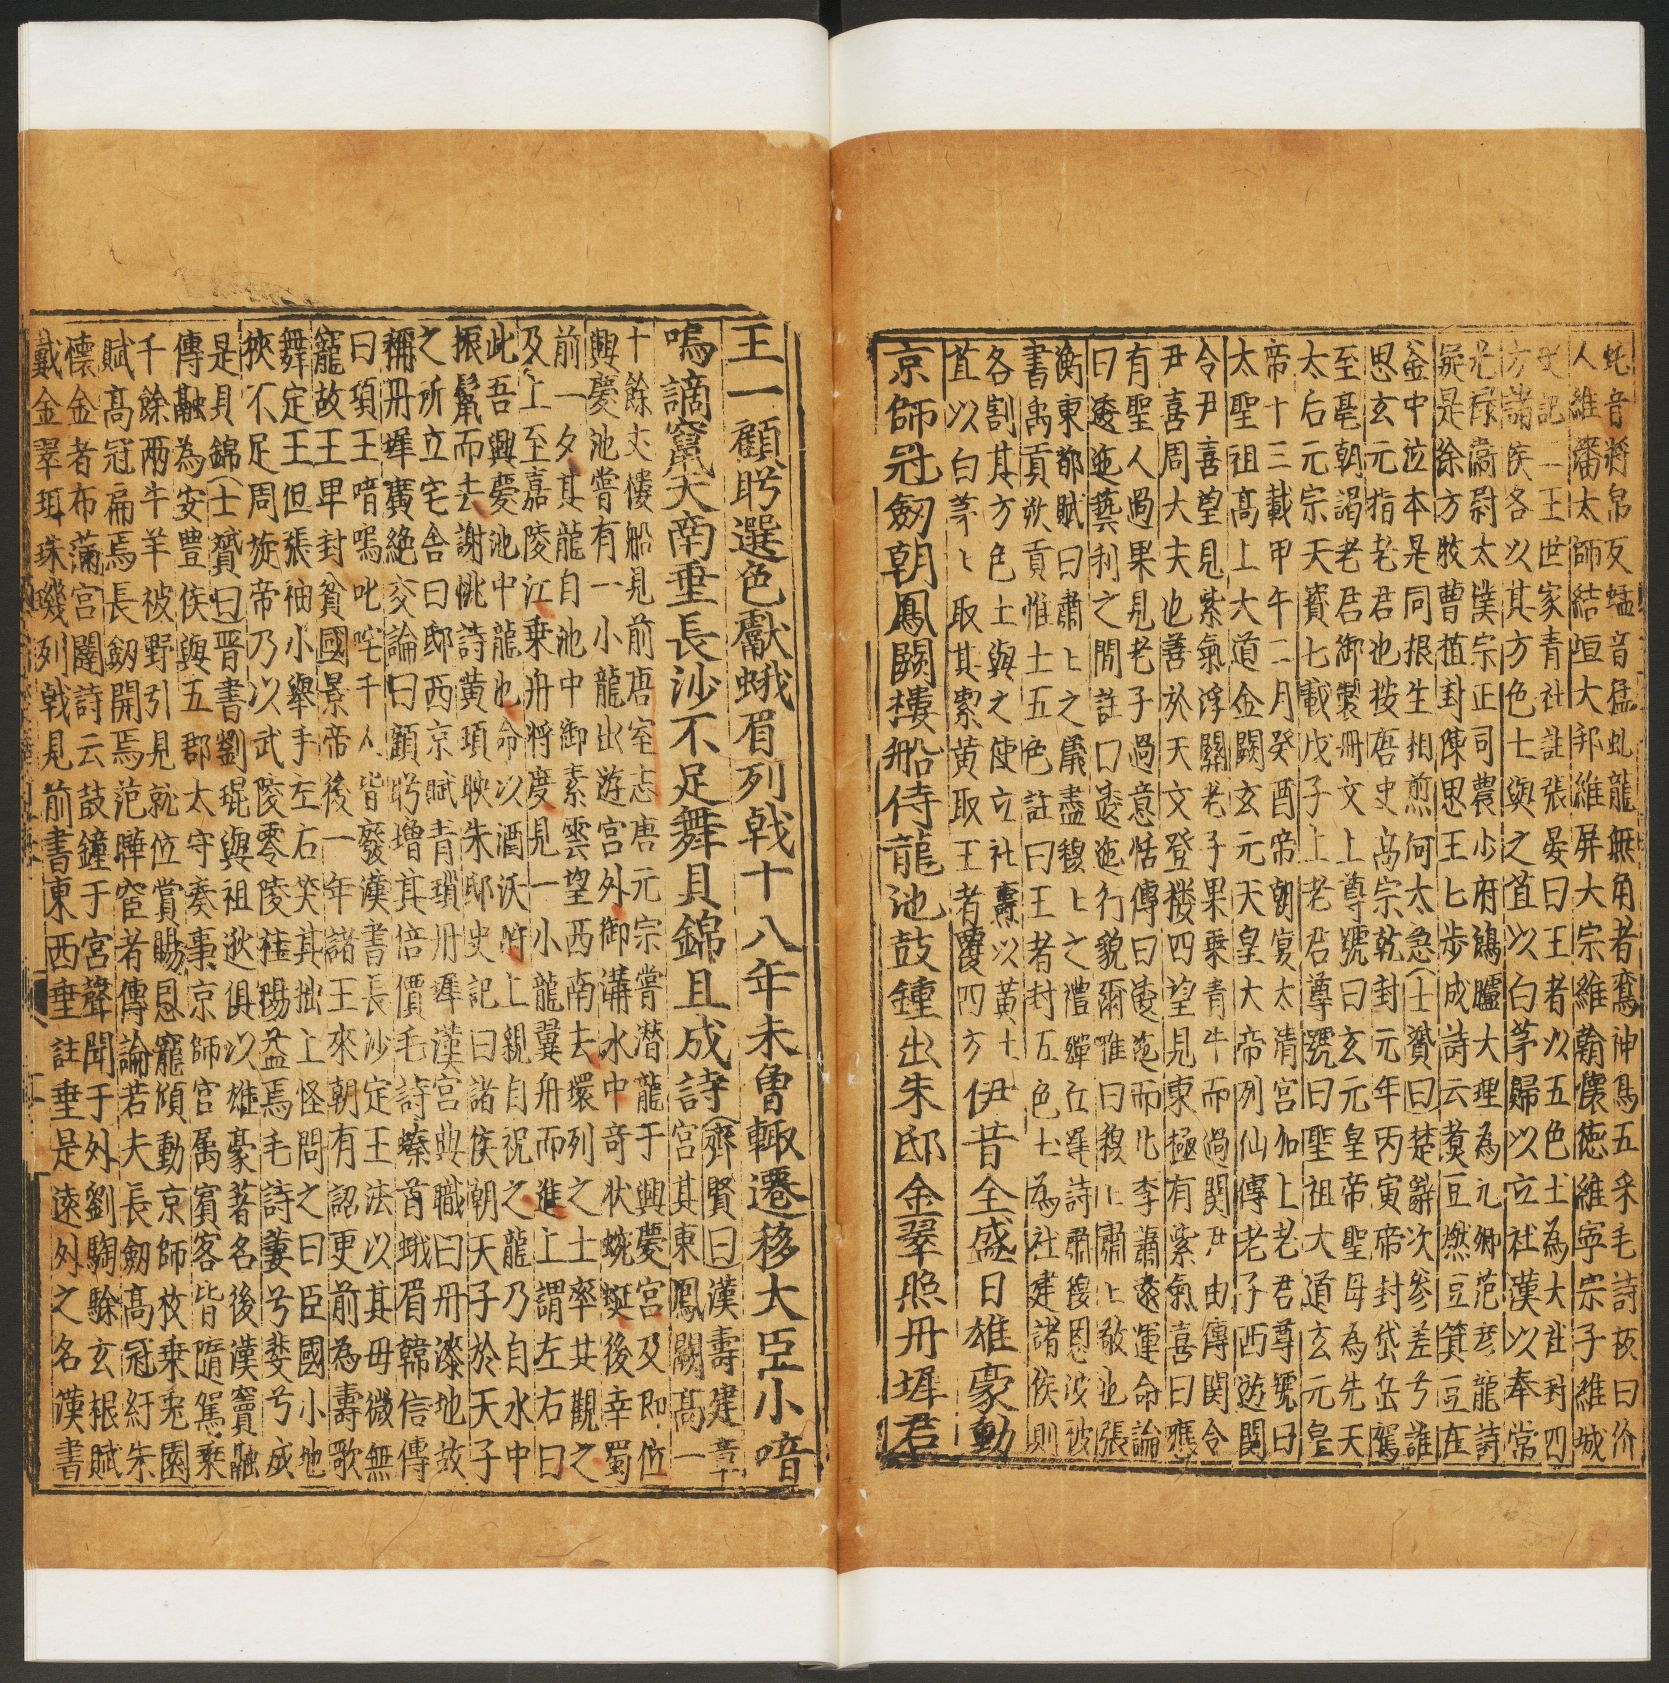 蛇音蔣帛反蜢音猛虬龍無角者鸞神鳥五采毛詩板曰价
人維藩太師結垣大邦維屏大宗維翰懷德維寧宗子維城
史記三王世家青社註張晏曰王者以五色土為大社封四
方諸侯各以其方色土與之苴以白茅歸以立社漢以奉常
光祿衛尉太僕宗正司農少府鴻臚大理為九卿范彥龍詩
疑是徐方牧曹植封陳思王七步成詩云煑豆燃豆箕豆在
釜中泣本是同根生相煎何太急(士贇曰楚辭次參差兮誰
思玄元指老君也按唐史高宗乾封元年丙寅帝封岱岳駕
至亳朝謁老君御製冊文上尊號曰玄元皇帝聖母為先天
太后元宗天寶七載戊子上老君尊號曰聖祖大道玄元皇
帝十三載甲午二月癸酉帝朝宴太清宮加上老君尊號曰
太聖祖高上大道金闕玄元天皇大帝列仙傳老子西遊関
令尹喜望見紫氣浮關老子果乘青牛而過関尹由傳関令
尹喜周大夫也善於天文登樓四望見東極有紫氣喜曰應
有聖人過果見老子過意恬傳曰逶迤而化李蕭遠運命論
曰逶迤藝利之間註曰逶迤行貌爾雅曰穆上肅上敬也張
衡東都賦曰肅上之儀盡穆上之禮殫丘遲詩肅穆恩波被
書禹貢厥貢惟土五色註曰王者封五色土為社建諸侯則
各割其方色土與之使立社燾以黃土
苴以白茅上取其潔黃取王者覆四方 伊昔全盛日雄豪動
京師冠劒朝鳳闕樓船侍龍池鼓鐘出朱邸金翠照丹墀君
王一顧眄選色獻蛾眉列戟十八年未曾輙遷移大臣小喑
嗚謫竄天南垂長沙不足舞貝錦且成詩(齊賢曰漢壽建章
宮其東鳳闕高一
十餘丈樓船見前唐室志唐元宗嘗潛龍于興慶宮及即位
興慶池嘗有一小龍出游宮外御溝水中奇狀蜿蜒後幸蜀
前一夕其龍自池中御素雲望西南去環列之士率共觀之
及上至嘉陵江乗舟將度見一小龍翼舟而進上謂左右曰
此吾興慶池中龍也命以酒沃酹上親自祝之龍乃自水中
振鬣而去謝朓詩黃項映朱邸史記曰諸侯朝天子於天子
之所立宅舍曰邸西京賦青瑣丹墀漢宮典職曰丹漆地故
稱丹墀廣絶交論曰顧眄增其倍價毛詩螓首蛾眉韓信傳
曰項王喑嗚叱咤千人皆廢漢書長沙定王法以其母微無
寵故王卑封貧國景帝後一年諸王來朝有詔更前為壽歌
舞定王但張袖小舉手左右笑其拙上怪問之曰臣國小地
狹不足周旋帝乃以武陵零陵桂陽益焉毛詩萋兮斐兮成
是貝錦(士贇曰晋書劉琨與祖逖俱以雄豪著名後漢竇融
傳融為安豐侯與五郡太守奏事京師官屬賓客皆隨駕乗
千餘兩牛羊被野引見就位賞賜恩寵傾動京師枚乗兎園
賦高冠扁焉長劒開焉范曄宦者傳論若夫長劒高冠紆朱
懷金者布滿宮闕詩云鼓鐘于宮聲聞于外劉騊駼玄根賦
戴金翠珥珠璣列戟見前書東西垂註垂是遠外之名漢書